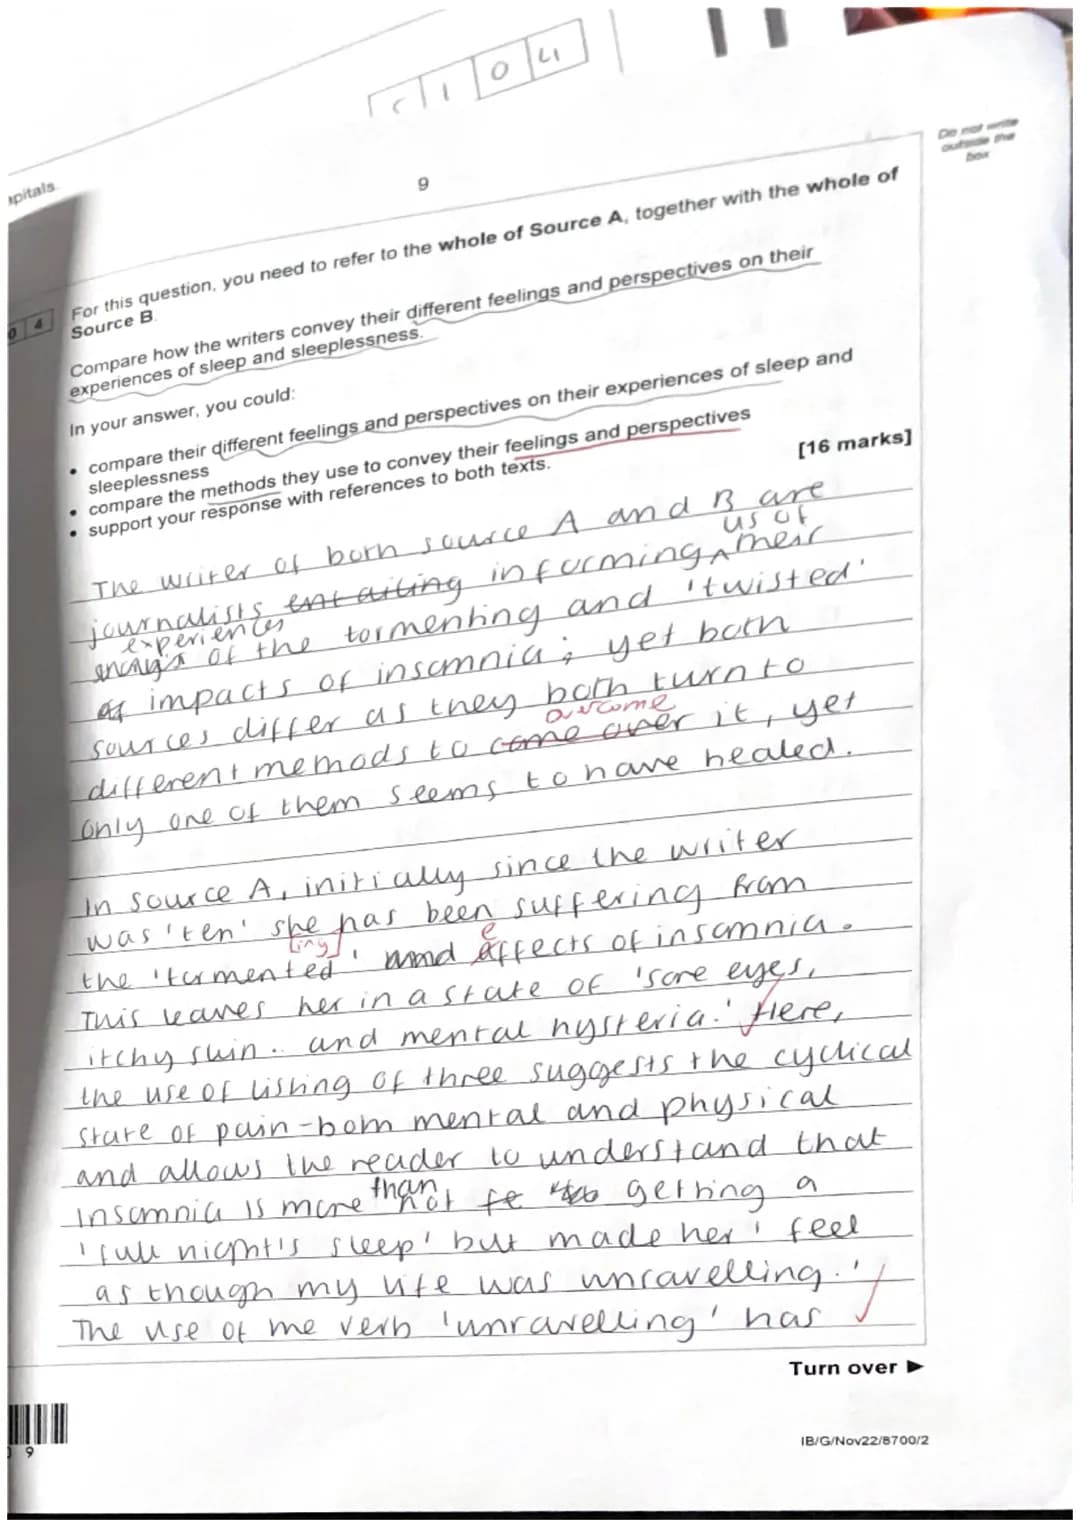 0 4
Do not write
outside the
box
apitals.
9
0 4
For this question, you need to refer to the whole of Source A, together with the whole of
Source B.
Compare how the writers convey their different feelings and perspectives on their
experiences of sleep and sleeplessness.
In your answer, you could:
• compare their different feelings and perspectives on their experiences of sleep and
sleeplessness
• compare the methods they use to convey their feelings and perspectives
• support your response with references to both texts.
[16 marks]
The writer of both source A and B are
journalists entailing informing us of their
experiences of the tormenting and 'twisted'
impacts of insomnia; yet both
sources differ as they both turn to
different methods to come over overcome it, yet
only one of them seems to have healed.
In source A, initially since the writer
was 'ten' she has been suffering from
the 'tormented ting' and effects of insomnia.
This leaves her in a state of 'sore eyes,
itchy skin.. and mental hysteria.' Here,
the use of listing of three suggests the cyclical
state of pain-both mental and physical
and allows the reader to understand that
insomnia is more than not getting a
'full night's sleep' but made her 'feel
as though my life was unravelling.'
The use of the verb 'unravelling' has
Turn over ►
9
IB/G/Nov22/8700/2